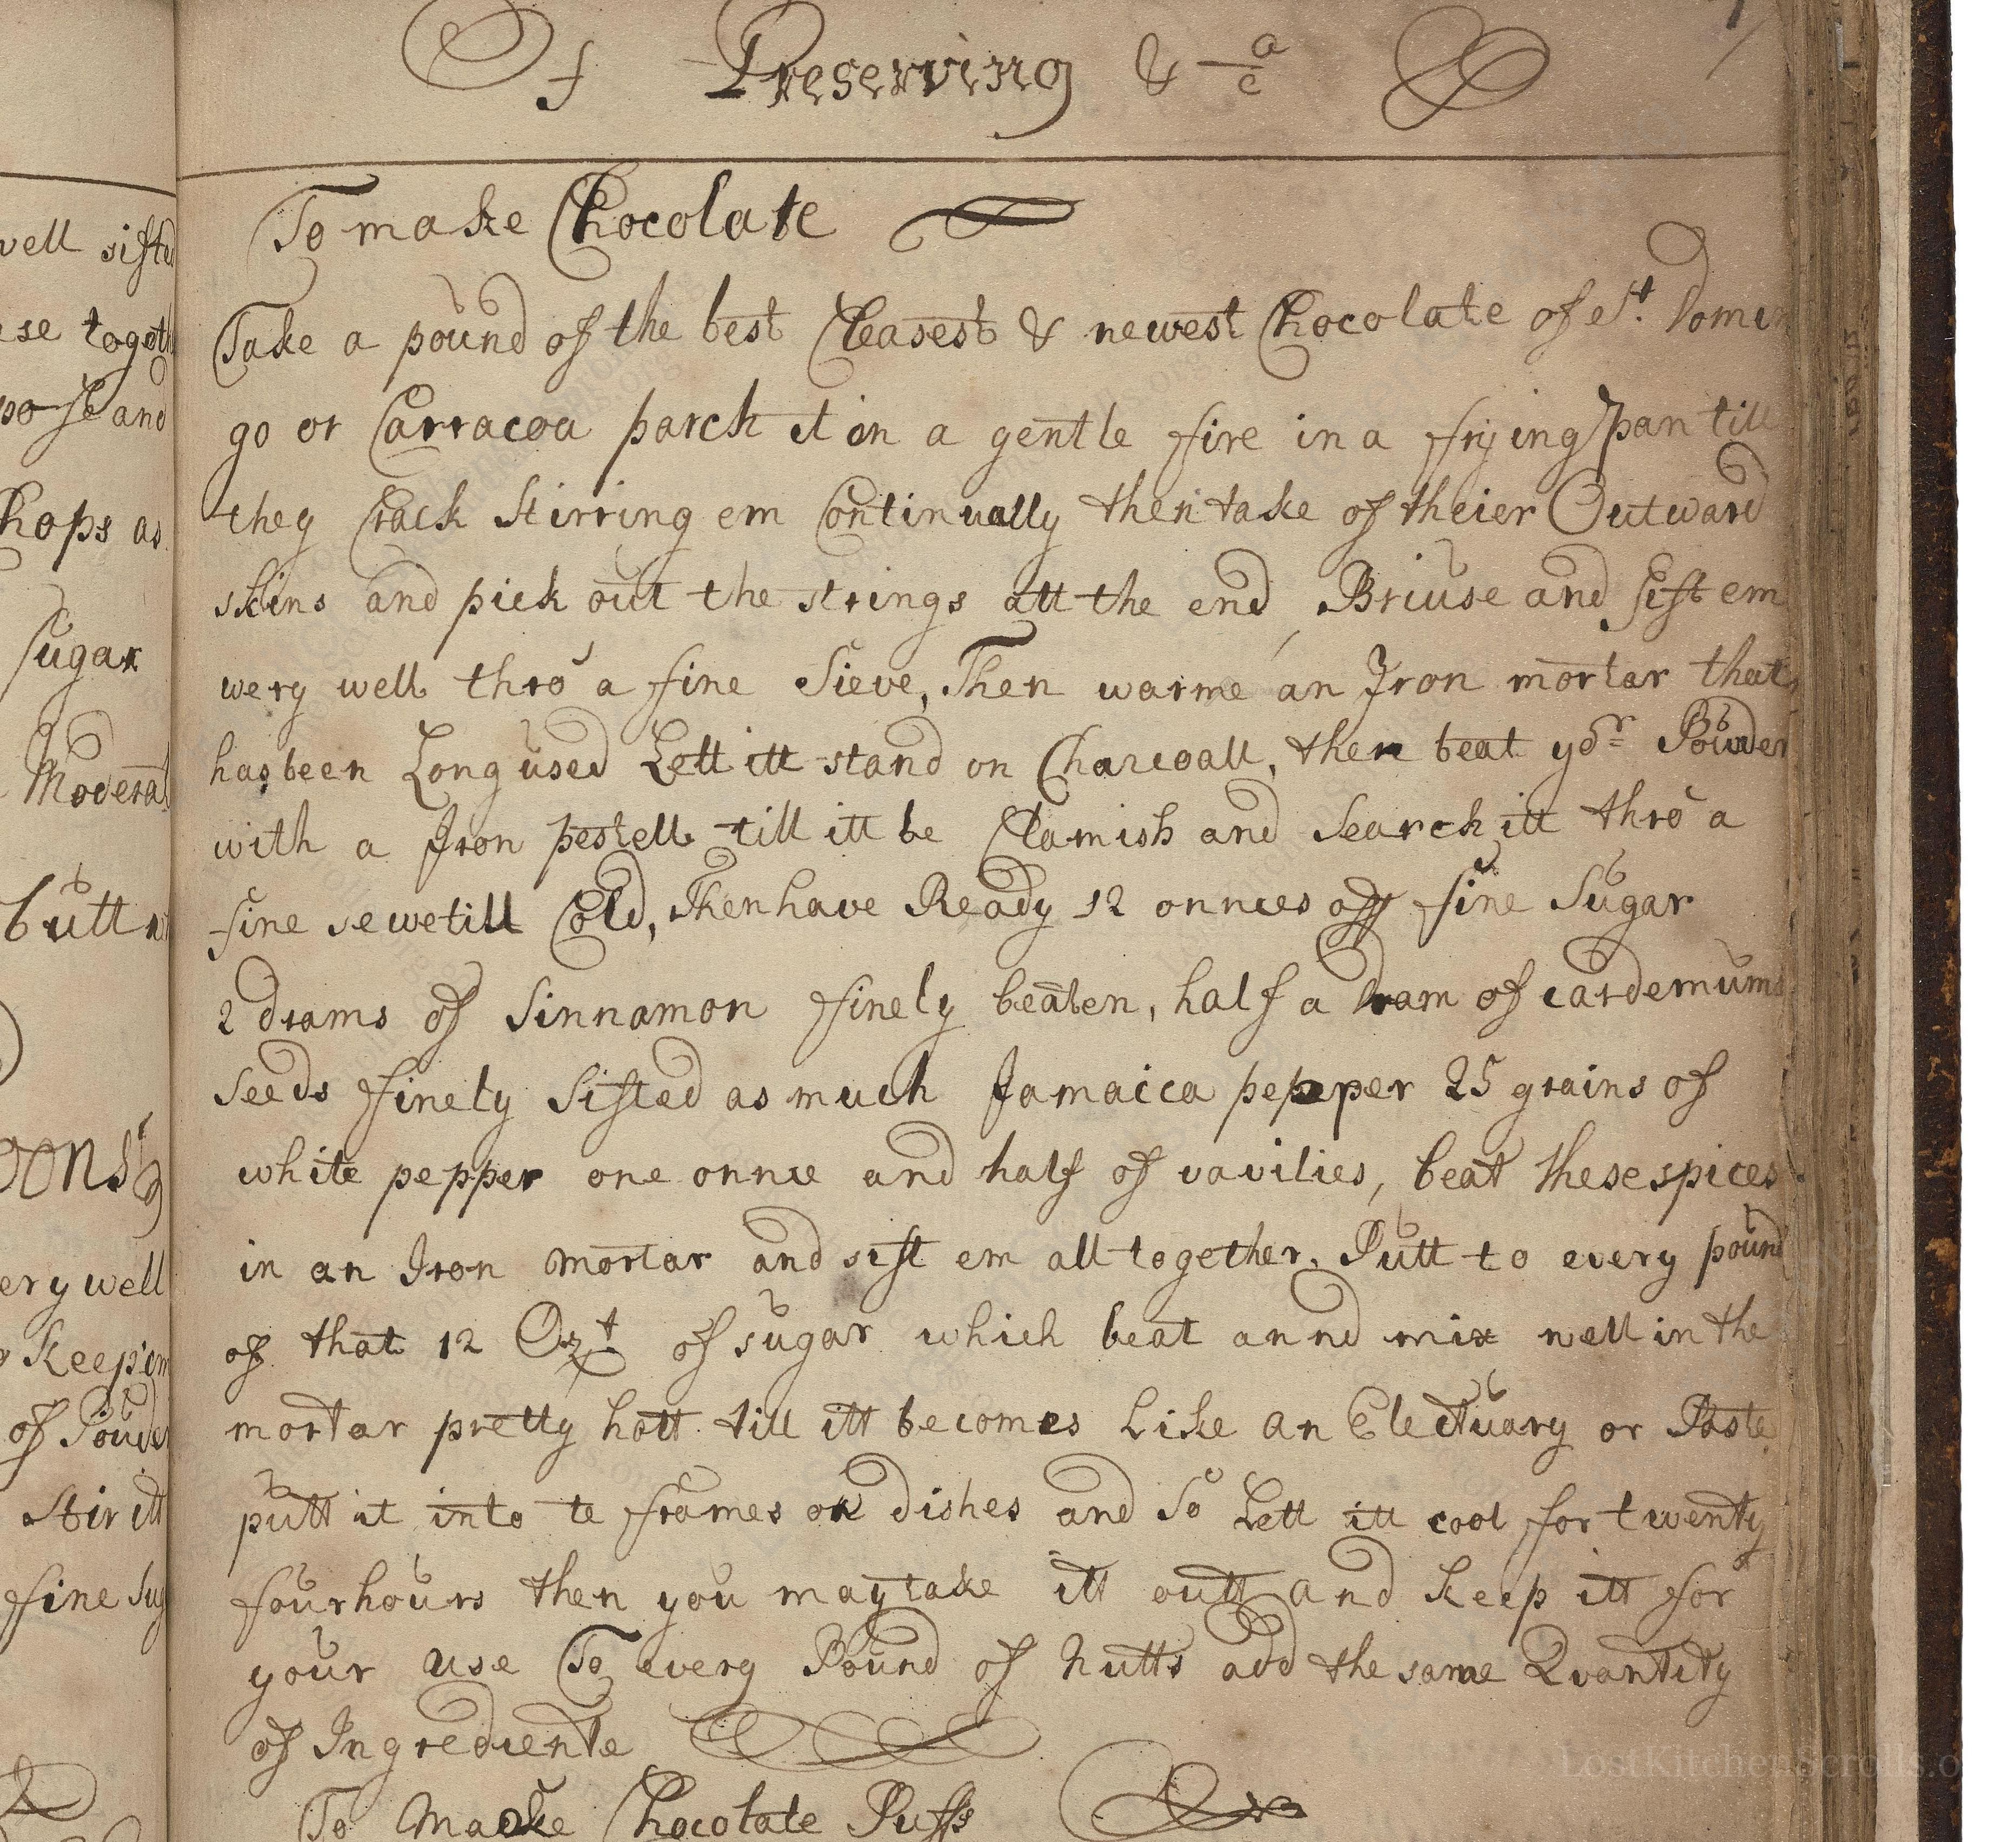 Of Preserving & ca
To make Chocolate
Take a pound of the best Cleasest & newest Chocolate of St. Domin
go or Carracoa parch it on a gentle fire in a frying pan till
they Crack Stirring em Continually then take of theier Outward
skins and pick out the strings att the end, Briuse and sift em
wery well thro a fine Sieve, Then warme an Iron mortar that
has been Long used Lett itt stand on Charcoall, then beat yor Powder
with a Iron pestell till itt be Clamish and Search itt thro a
fine sewe till Cold, Then have Ready 12 onnces off fine Sugar
2 drams of Sinnamon finely beaten, half a Dram of cardemums
Seeds finely Sifted as much Jamaica pepper 25 grains of
white pepper one onnce and half of vavilies, beat these spices
in an Iron mortar and sift em all together. Putt to every pound
of that 12 Ozt of sugar which beat annd mix well in the
mortar pretty hott till itt becomes Like an Electuary or Paste
putt it into te frames or dishes and So Lett itt cool for twenty
four hours then you may take itt outt and keep itt for
your use To every Pound of Nutts add the same Quantity
of Ingrediente
To Make Chocolate Puffs
well sifted
ese togeth
and
hops as
sugar
Moderat
butt
ery well
Keep em
of Pouder
Stir itt
fine Sug
LostKitchenScrolls.o